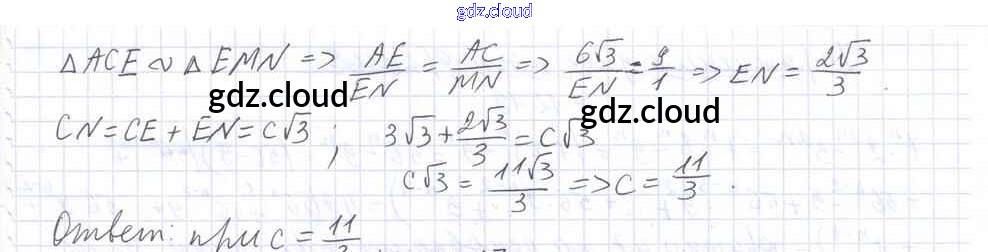 gdz.cloud
ΔACE ~ ΔEMN => AE/EN = AC/MN => 6√3/EN = 9/1 => EN = 2√3/3.
gdz.cloud gdz.cloud
CN = CE + EN = c√3; 3√3 + 2√3/3 = c√3
c√3 = 11√3/3 => c = 11/3.
Ответ: при c = 11/3.